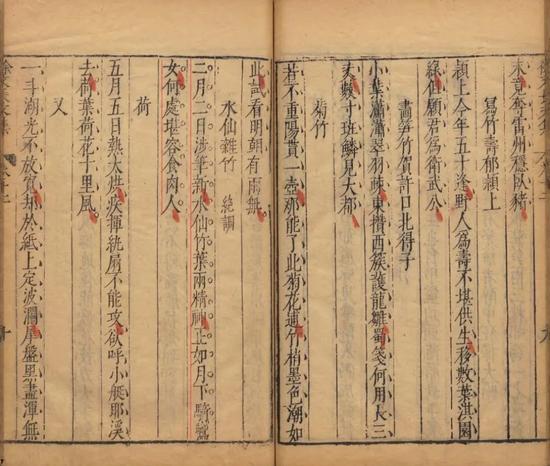 未竟雷州穩臥豬
寫竹壽郁潁上
潁上今年五十逢野人為壽不堪供生移數葉淇園
綠但願君為衛武公
畫笋竹賀許口北得子
小葉瀟瀟翠羽疎東攅西簇護龍雛蜀箋何用人三
丈數寸斑鱗見大都
菊竹
若不重陽貰一壺那能了此菊花逋竹梢墨色潮如
此試看明朝有雨無
水仙雜竹 絶調
二月二日涉筆新水仙竹葉兩精神正如月下騎鸞
女何處堪容食肉人
荷
五月五日熱太烘疾揮紈扇不能攻欲呼小艇耶溪
去荷葉荷花十里風
又
一斗湖光不放寬却於紙上定波瀾厚盤墨盡渾無